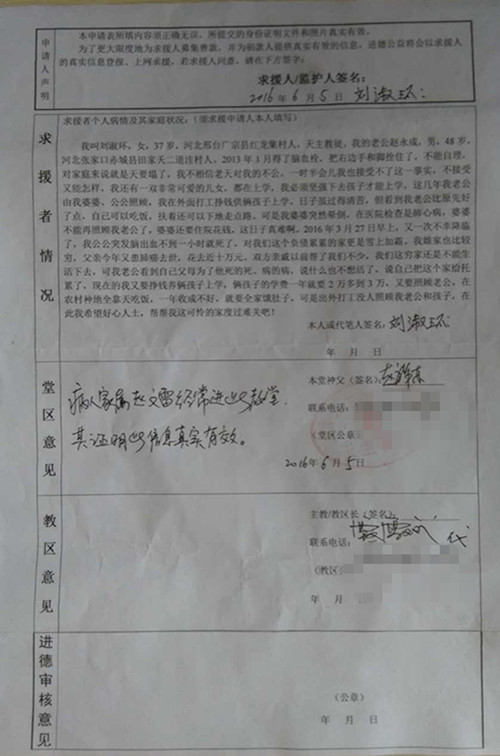 申请人声明
本申请表所填内容须正确无误，所提交的身份证明文件和照片真实有效。
为了更大限度地为求援人募集善款，并为捐款人提供真实有效的信息，进德公益将会以求援人
的真实信息登报、上网求援，若求援人同意，请在下方签字：
求援人/监护人签名：
2016年6月5日 刘淑环
求援者情况
求援者个人病情及其家庭状况：（须求援申请人本人填写）
我叫刘淑环，女，37岁，河北邢台广宗县红龙集村人，天主教徒，我的老公赵永成，男，48岁，
河北张家口赤城县田家天二道洼村人，2013年3月得了脑血栓，把右边手和脚拴住了，不能自理，
对家庭来说就是天要塌了，我不相信老天对我的不公，一时半会儿我也接受不了这一事实，不接受
又能怎样，我还有一双非常可爱的儿女，都在上学，我必须坚强下去孩子才能上学，这几年我老公
由我婆婆、公公照顾，我在外面打工挣钱供俩孩子上学，日子虽过得清苦，但看到我老公比原先好
了点，自己可以吃饭，扶着还可以下地走点路，可是我婆婆突然晕倒，在医院检查是肺心病，婆婆
不能再照顾我老公了，婆婆还要住院花钱，这日子真难啊。2016年3月27日早上，又一次不幸降临
了，我公公突发脑出血不到一小时就死了，对我们这个负债累累的家更是雪上加霜，我娘家也比较
穷，父亲今年又患肺癌去世，花去近十万元，双方亲戚以前帮了我们不少，我这穷家还是不能生
活下去，可我老公看到自己父母为了他死的死、病的病，说什么也不想活了，说自己把这个家给拓
累了，现在的我又要挣钱养俩孩子上学，俩孩子的学费一年就要2万多到3万，又要照顾老公，在
农村种地全靠天吃饭，一年收成不好，就要全家饿肚子，可是出外打工没人照顾我老公和孩子，在
此我希望好心人士，帮帮我这可怜的家度过难关吧！
本人或代笔人签名：刘淑环
年 月 日
堂区意见
病人家属赵文雷经常进此教堂
其证明此信息真实有效。
本堂神父（签名）：
联系电话：
（堂区公章）
2016年6月5日
教区意见
主教/教区长（签名）：
联系电话：
代
（教区
年 月 日
进德审核意见
（公章）
年 月 日